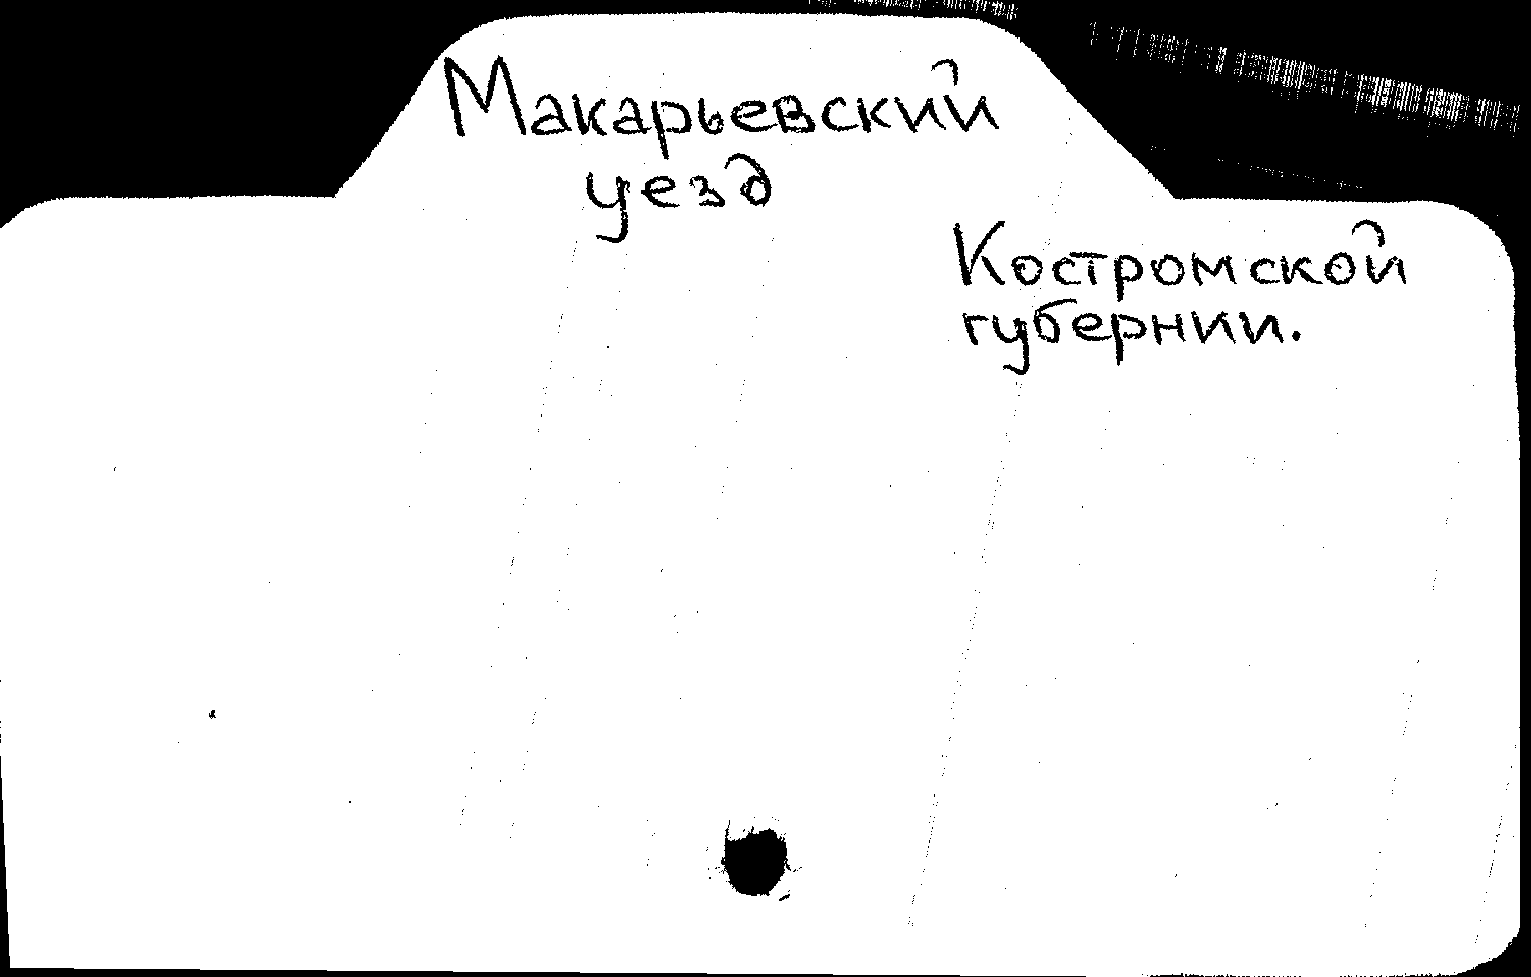 Макарьевский
уезд
Костромской
губернии.